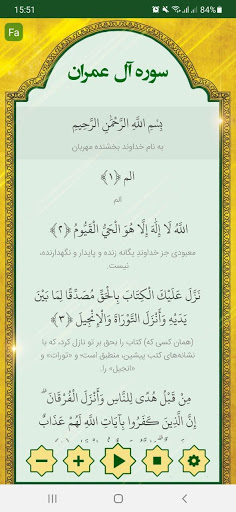 15:51
84%
Fa
سوره آل عمران
بِسْمِ اللَّهِ الرَّحْمَٰنِ الرَّحِيمِ
به نام خداوند بخشنده مهربان
الم ﴿۱﴾
الم
اللَّهُ لَا إِلَٰهَ إِلَّا هُوَ الْحَيُّ الْقَيُّومُ ﴿۲﴾
معبودی جز خداوند یگانه زنده و پایدار و نگهدارنده،
نیست.
نَزَّلَ عَلَيْكَ الْكِتَابَ بِالْحَقِّ مُصَدِّقًا لِمَا بَيْنَ
يَدَيْهِ وَأَنْزَلَ التَّوْرَاةَ وَالْإِنْجِيلَ ﴿۳﴾
(همان کسی که) کتاب را بحق بر تو نازل کرد، که با
نشانه‌های کتب پیشین، منطبق است؛ و «تورات» و
«انجیل» را.
مِنْ قَبْلُ هُدًى لِلنَّاسِ وَأَنْزَلَ الْفُرْقَانَ ۗ
إِنَّ الَّذِينَ كَفَرُوا بِآيَاتِ اللَّهِ لَهُمْ عَذَابٌ